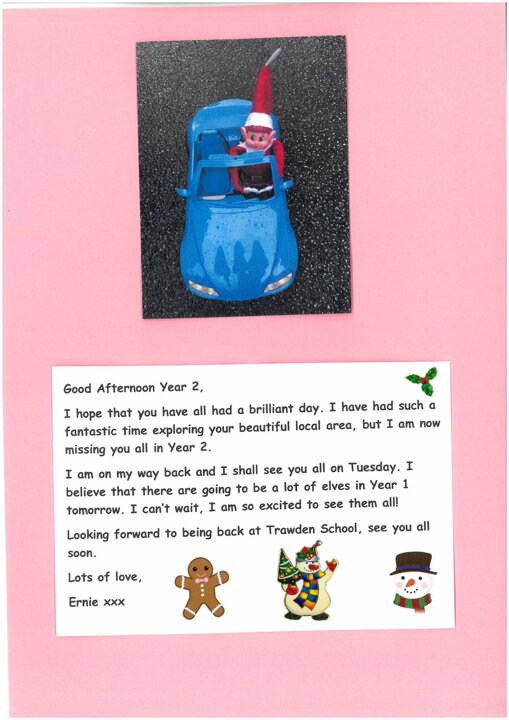 Good Afternoon Year 2,
I hope that you have all had a brilliant day. I have had such a
fantastic time exploring your beautiful local area, but I am now
missing you all in Year 2.
I am on my way back and I shall see you all on Tuesday. I
believe that there are going to be a lot of elves in Year 1
tomorrow. I can't wait, I am so excited to see them all!
Looking forward to being back at Trawden School, see you all
soon.
Lots of love,
Ernie xxx